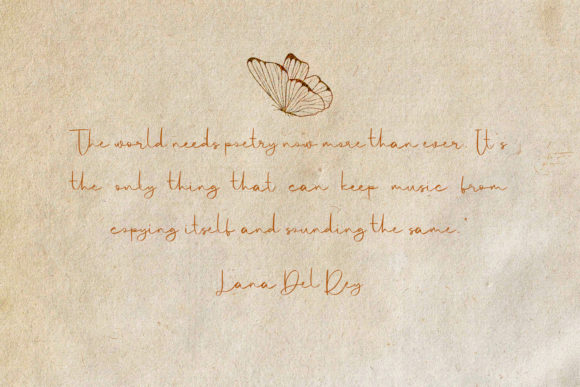 The world needs poetry now more than ever. It's
the only thing that can keep music from
copying itself and sounding the same."
Lana Del Rey